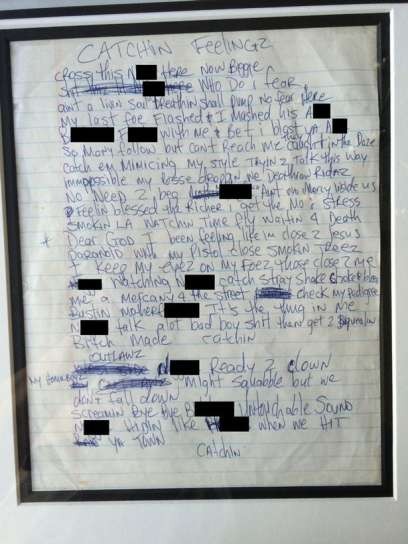 CATCHIN FEELINGZ
cross this N Here Now Biggie
Who Do i fear
aint a livin soul breathin shall pump no fear here
My last foe Flashed & I Mashed his A
B F With Me & Bet i blast ya A
So Many follow but cant Reach me caught in the Daze
catch em MiMiCing my style TRYIN 2 talk this way
immpossible my Posse droppin me Deathrow Ridaz
No Need 2 beg Ain't no Mercy inside us
Feelin blessed the Richer i got the No's stress
Smokin LA Watchin Time fly Waitin 4 Death
Dear GOD I been feeling life im close 2 Jesus
Paranoid with my Pistol close Smokin Treez
I Keep my eyez on my Foez those close 2 me
Watching N catch stray
me a 4 the street check my Pedigree
Bustin mother It's the thug in me
N talk plot bad boy shit then get 2
Bitch Made catchin
OUTLAWZ
N Ready 2 clown
My Homeboyz Might squabble but we
don't fall down
Screamin Bye the B Untouchable Sound
N Hidin like H when we HIT
ya Town
Catchin